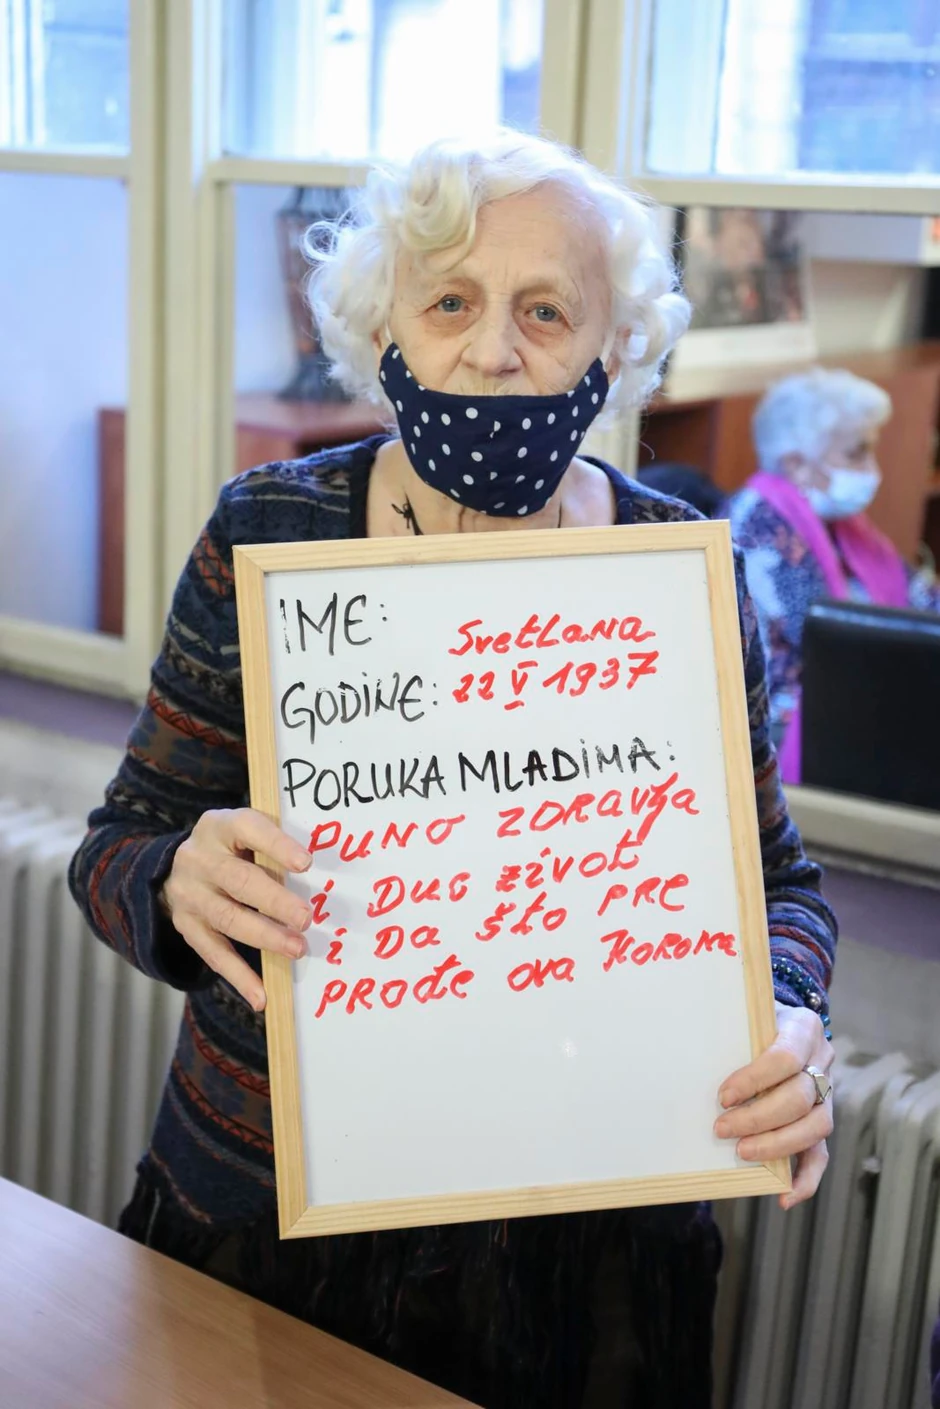 IME: Svetlana
GODINE: 22 V 1937
PORUKA MLADIMA:
PUNO ZDRAVLJA
i DUG ŽIVOT
i DA ŠTO PRE
PROĐE OVA KORONA